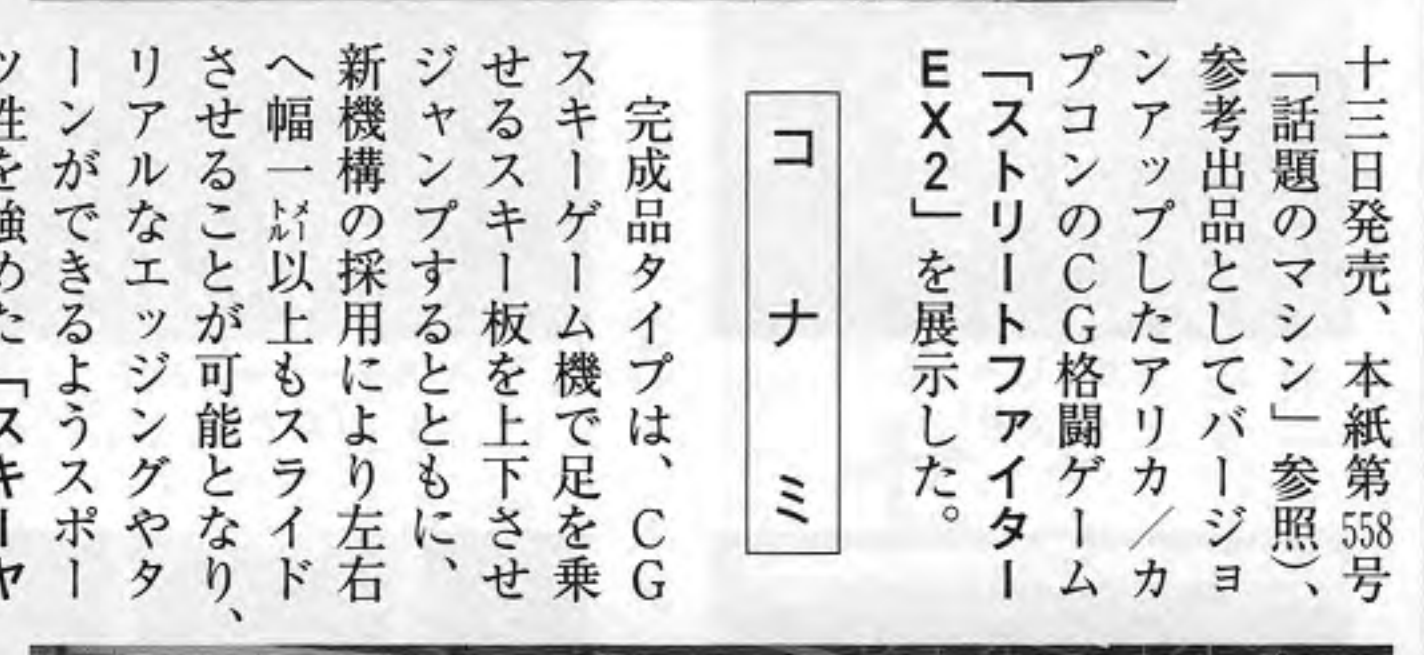 十三日発売、本紙第558号
「話題のマシン」参照)、
参考出品としてバージョ
ンアップしたアリカ/カ
プコンのCG格闘ゲーム
「ストリートファイター
EX2」を展示した。
コナミ
完成品タイプは、CG
スキーゲーム機で足を乗
せるスキー板を上下させ
ジャンプするとともに、
新機構の採用により左右
へ幅一メートル以上もスライド
させることが可能となり、
リアルなエッジングやタ
ーンができるようスポー
ツ性を強めた「スキーヤ